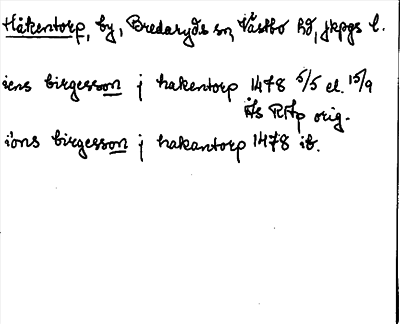 Håkentorp, by, Bredaryds sn, Västbo hd, Jkpgs l.
iens birgesson j hakentorp 1478 5/5 el. 15/9
Äs RAp orig.
ions birgesson j hakantorp 1478 ib.